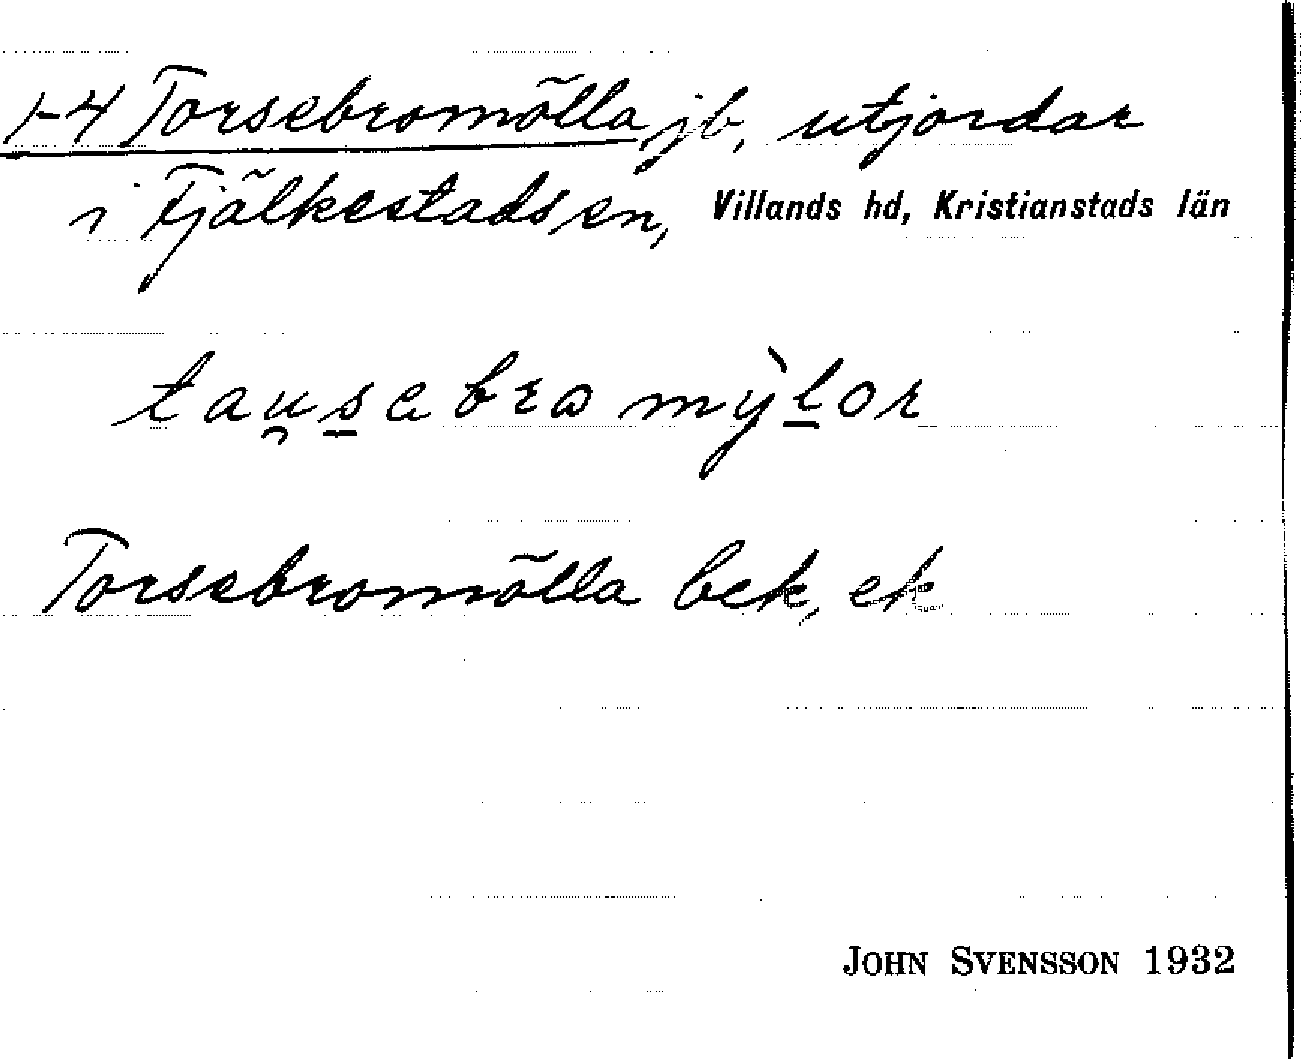 1-4 Torsebromölla jb, utjordar
i Fjälkestads sn, Villands hd, Kristianstads län
tau̯s̲ebro mỳl̲or
Torsebromölla bek, ek
JOHN SVENSSON 1932